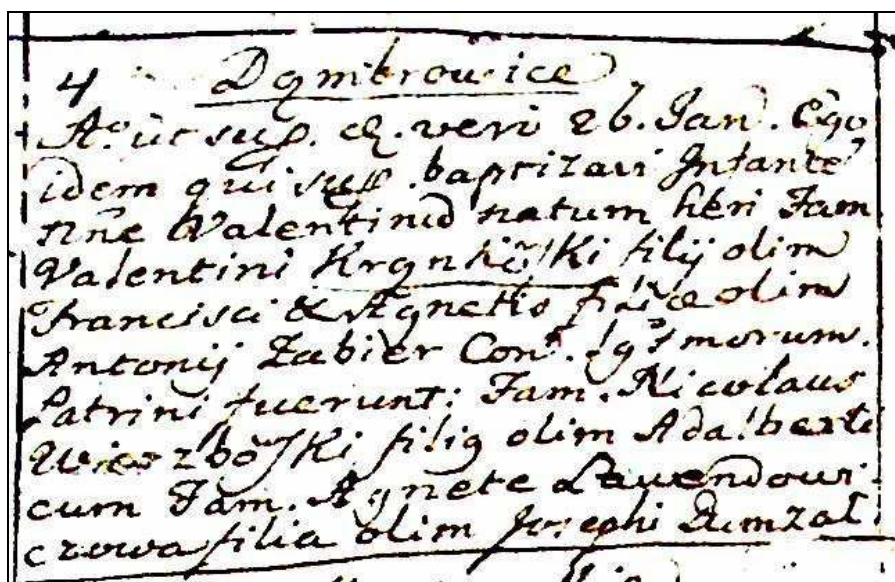 4 Dąmbrowice
Ao. ut sup. d. vero 26. Jan. Ego
idem qui sup. baptizavi Infante
nne Valentinū natum heri Fam.
Valentini Krąnkõski filij olim
Francisci & Agnetis filiæ olim
Antonij Zabier Con. Lgtmorum.
Patrini fuerunt: Fam. Nicolaus
Wierzbõski filig olim Adalberti
cum Fam. Agnete
czowa filia olim Josephi